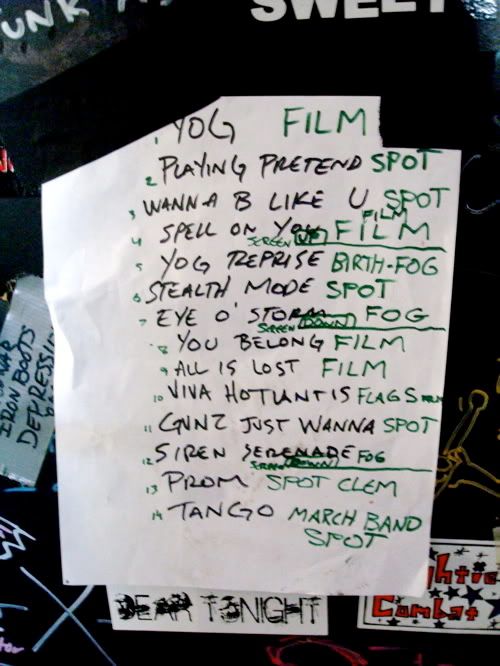 SWEET
1 YOG FILM
2 PLAYING PRETEND SPOT
3 WANNA B LIKE U SPOT
FILM
4 SPELL ON YOU FILM
SCREEN UP
5 YOG REPRISE BIRTH-FOG
6 STEALTH MODE SPOT
7 EYE O' STORM FOG
SCREEN DOWN
8 YOU BELONG FILM
9 ALL IS LOST FILM
10 VIVA HOTLANTIS FLAGS FILM
11 GUNZ JUST WANNA SPOT
12 SIREN SERENADE FOG
SCREEN DOWN
13 PROM SPOT CLEM
14 TANGO MARCH BAND
SPOT
IRON BOOTS
DEAR TONIGHT
Combat